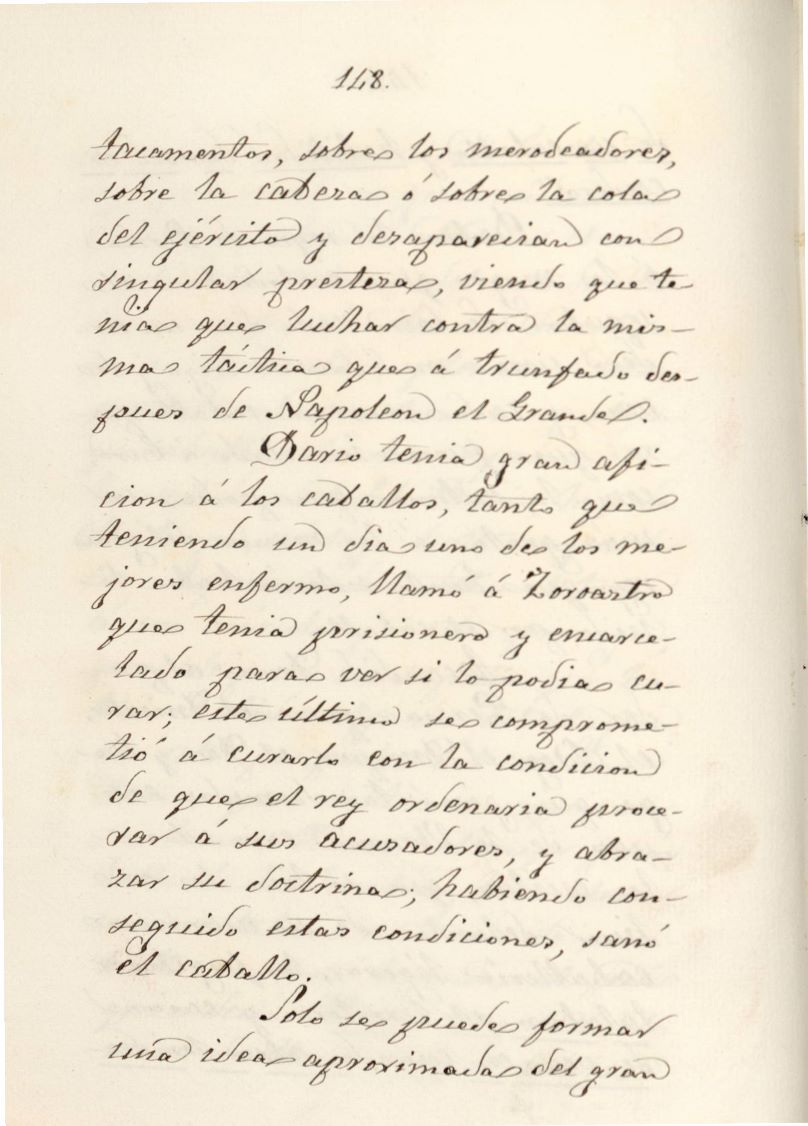 148.
tacamentos, sobre los merodeadores,
sobre la cabeza ó sobre la cola
del ejército y desaparecian con
singular presteza, viendo que te-
nia que luchar contra la mis-
ma táctica que á trunfado des-
pues de Napoleon el Grande.
Dario tenia gran afi-
cion á los caballos, tanto que
teniendo un dia uno de los me-
jores enfermo, llamó á Zoroastro
que tenia prisionero y encarce-
lado para ver si lo podia cu-
rar; este último se comprome-
tió á curarlo con la condicion
de que el rey ordenaria proce-
sar á sus acusadores, y abra-
zar su doctrina; habiendo con-
seguido estas condiciones, sanó
el caballo.
Solo se puede formar
una idea aproximada del gran